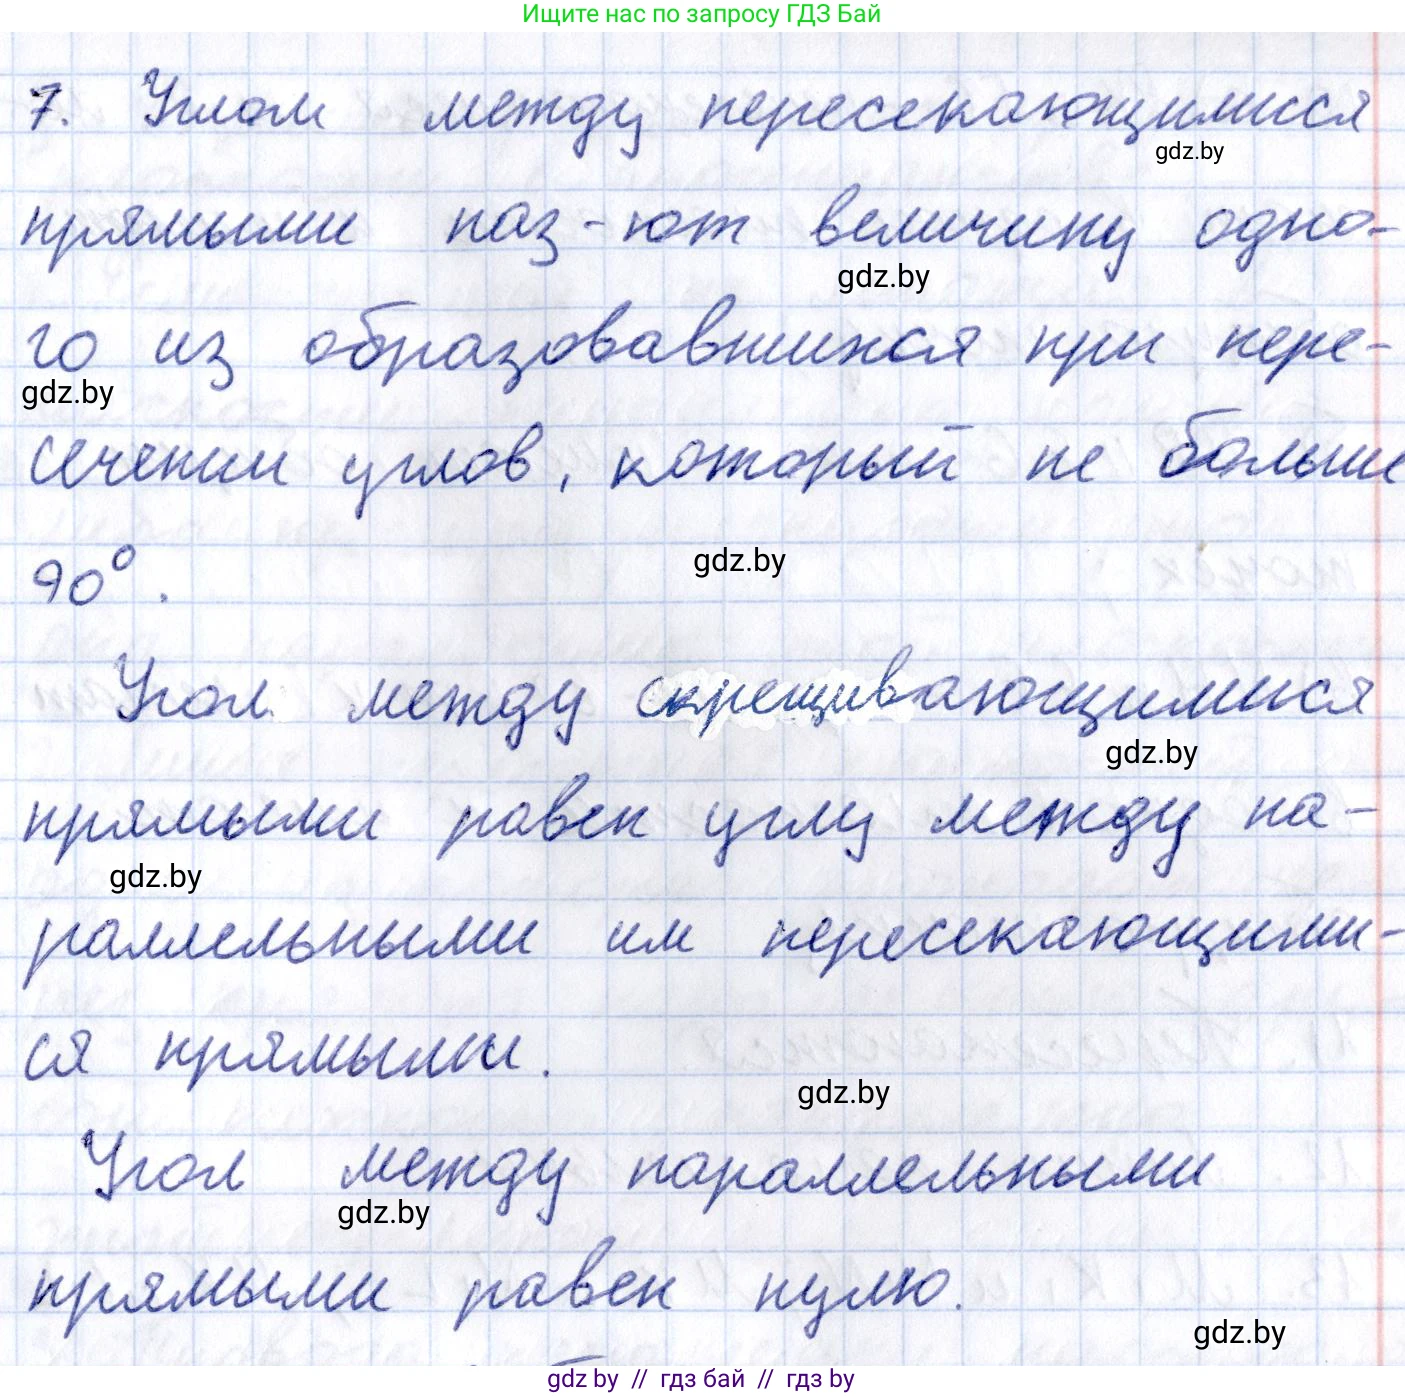 Ищите нас по запросу ГДЗ Бай
7. Углом между пересекающимися
gdz.by
прямыми наз-ют величину одно-
gdz.by
го из образовавшихся при пере-
gdz.by
сечении углов, который не больше
90°.
gdz.by
Угол между скрещивающимися
gdz.by
прямыми равен углу между па-
gdz.by
раллельными им пересекающими-
ся прямыми.
gdz.by
Угол между параллельными
gdz.by
прямыми равен нулю.
gdz.by
gdz by // гдз бай // гдз by